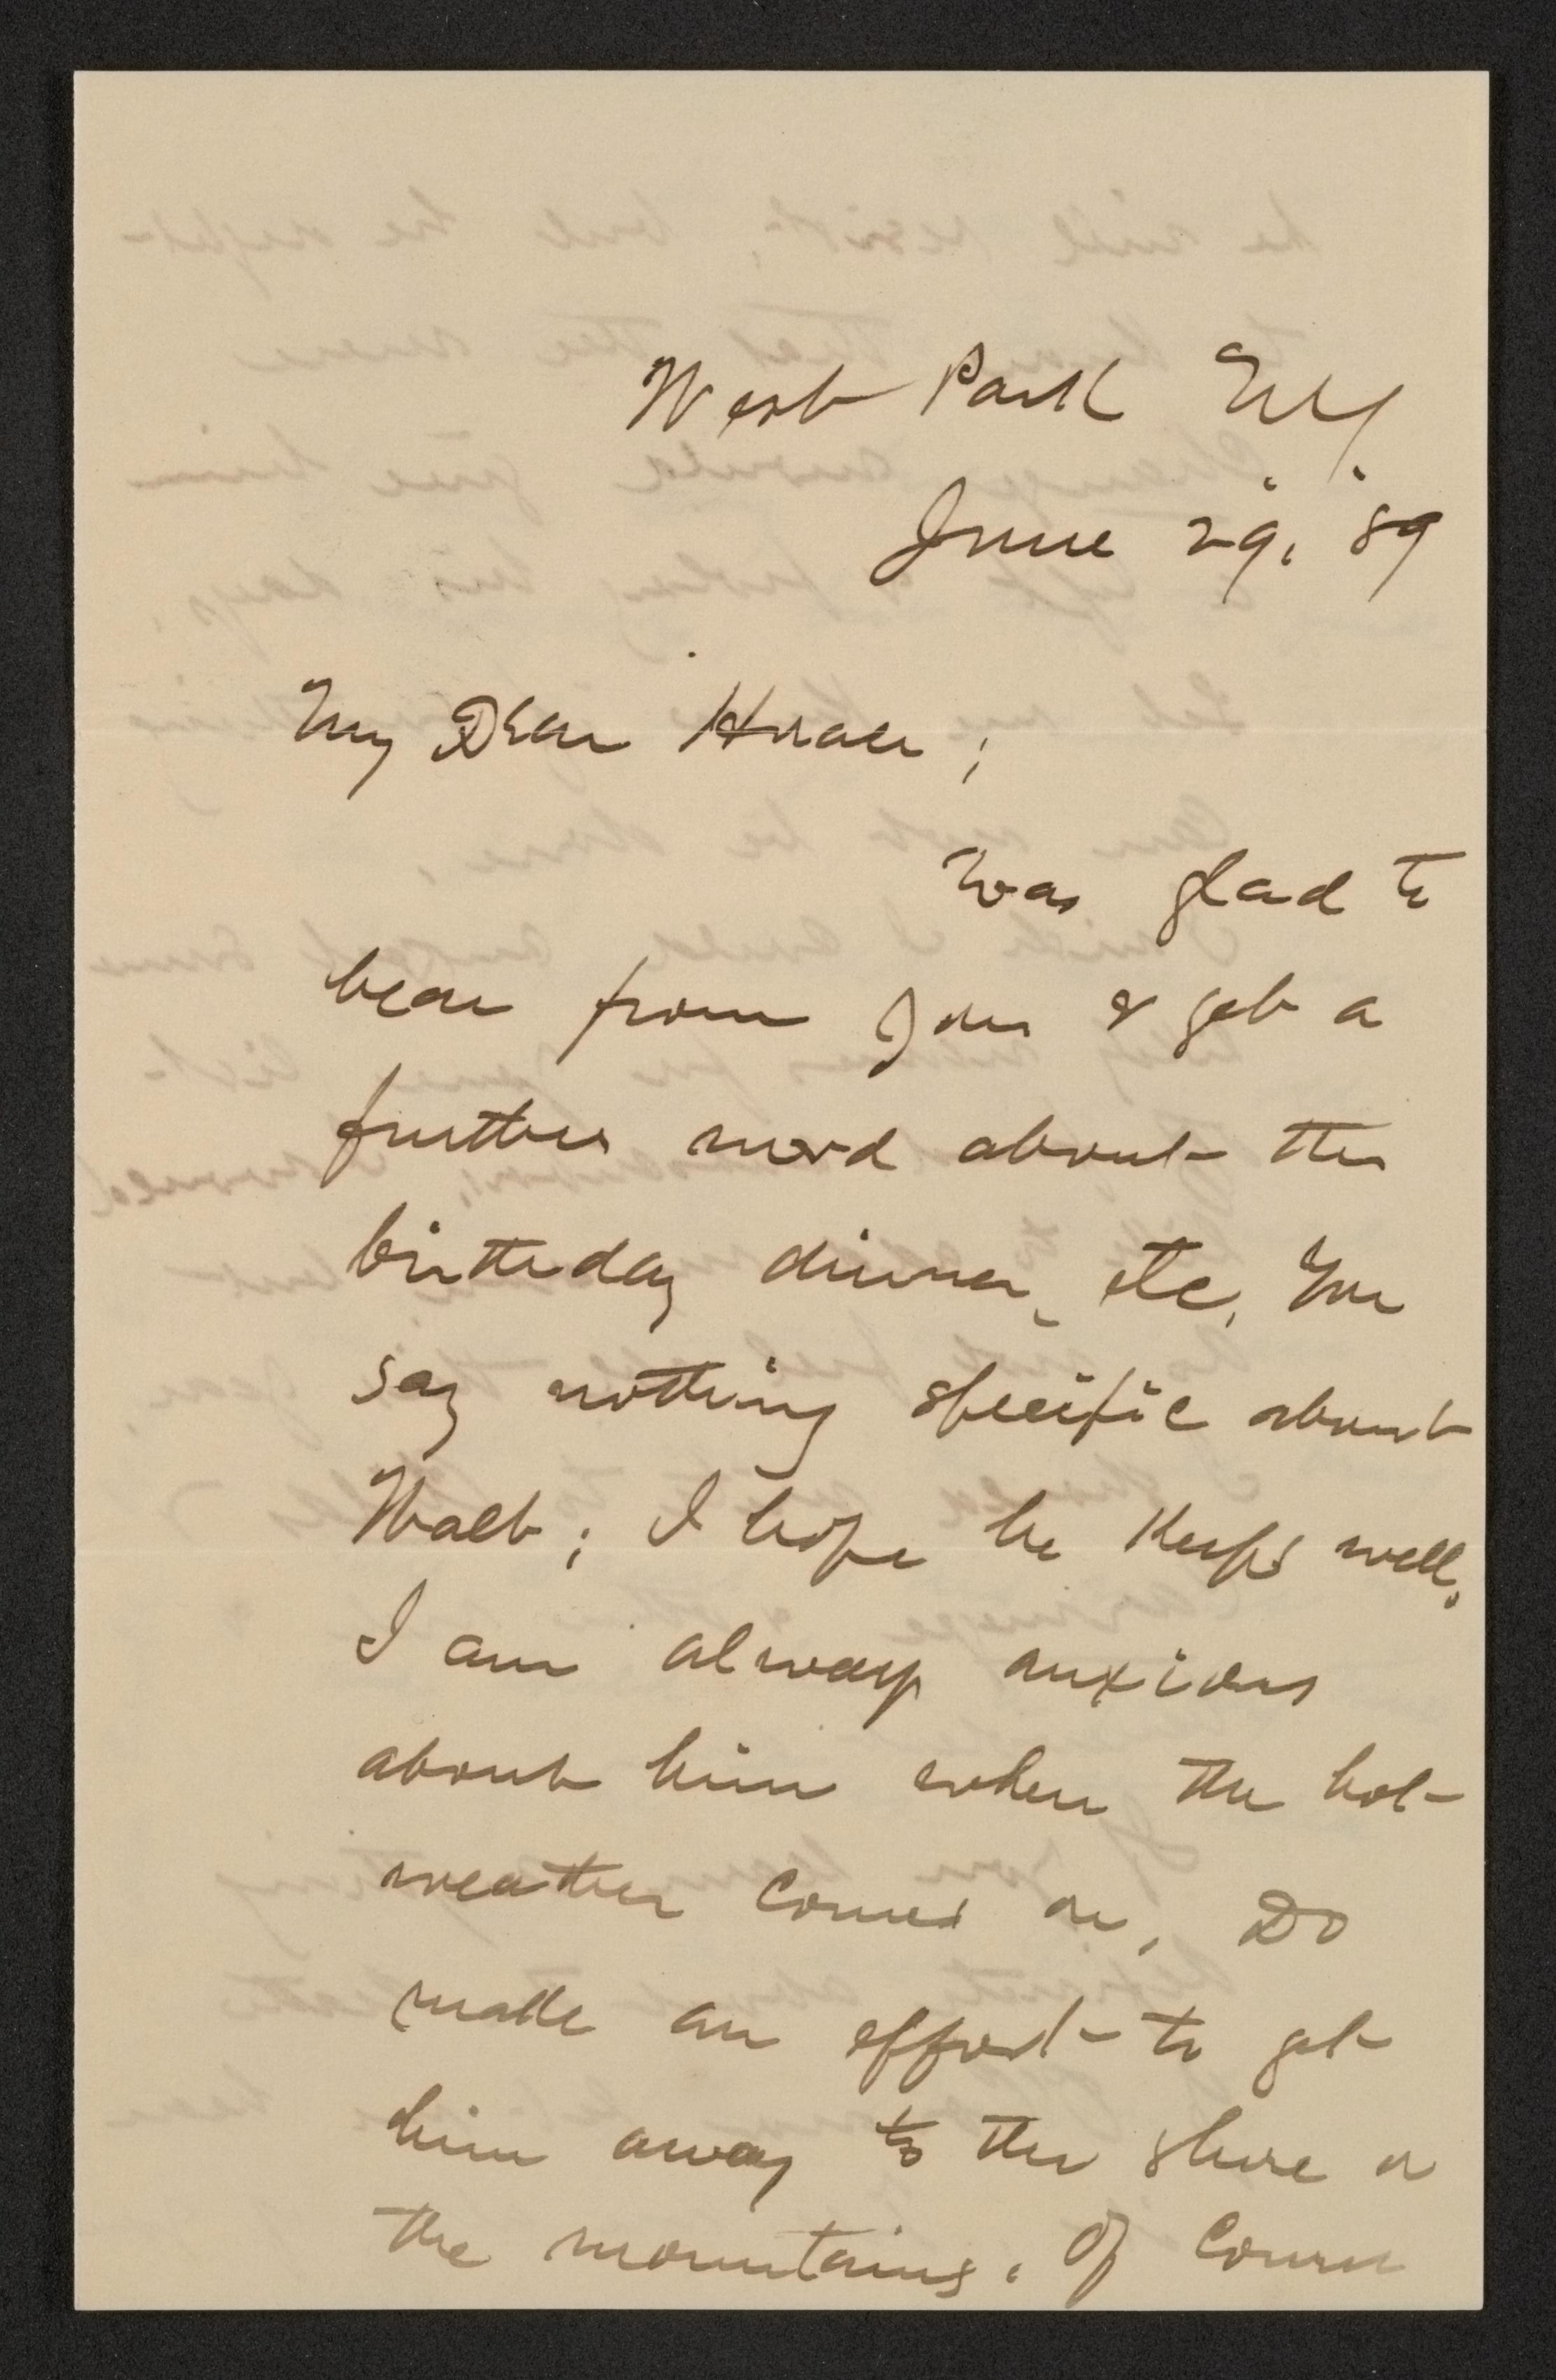 West Park NY
June 29, '89
My Dear Horace;
Was glad to
hear from you & get a
further word about the
birthday dinner, etc. You
say nothing specific about
Walt; I hope he keeps well.
I am always anxious
about him when the hot
weather comes on. Do
make an effort to get
him away to the shore or
the mountains. Of course